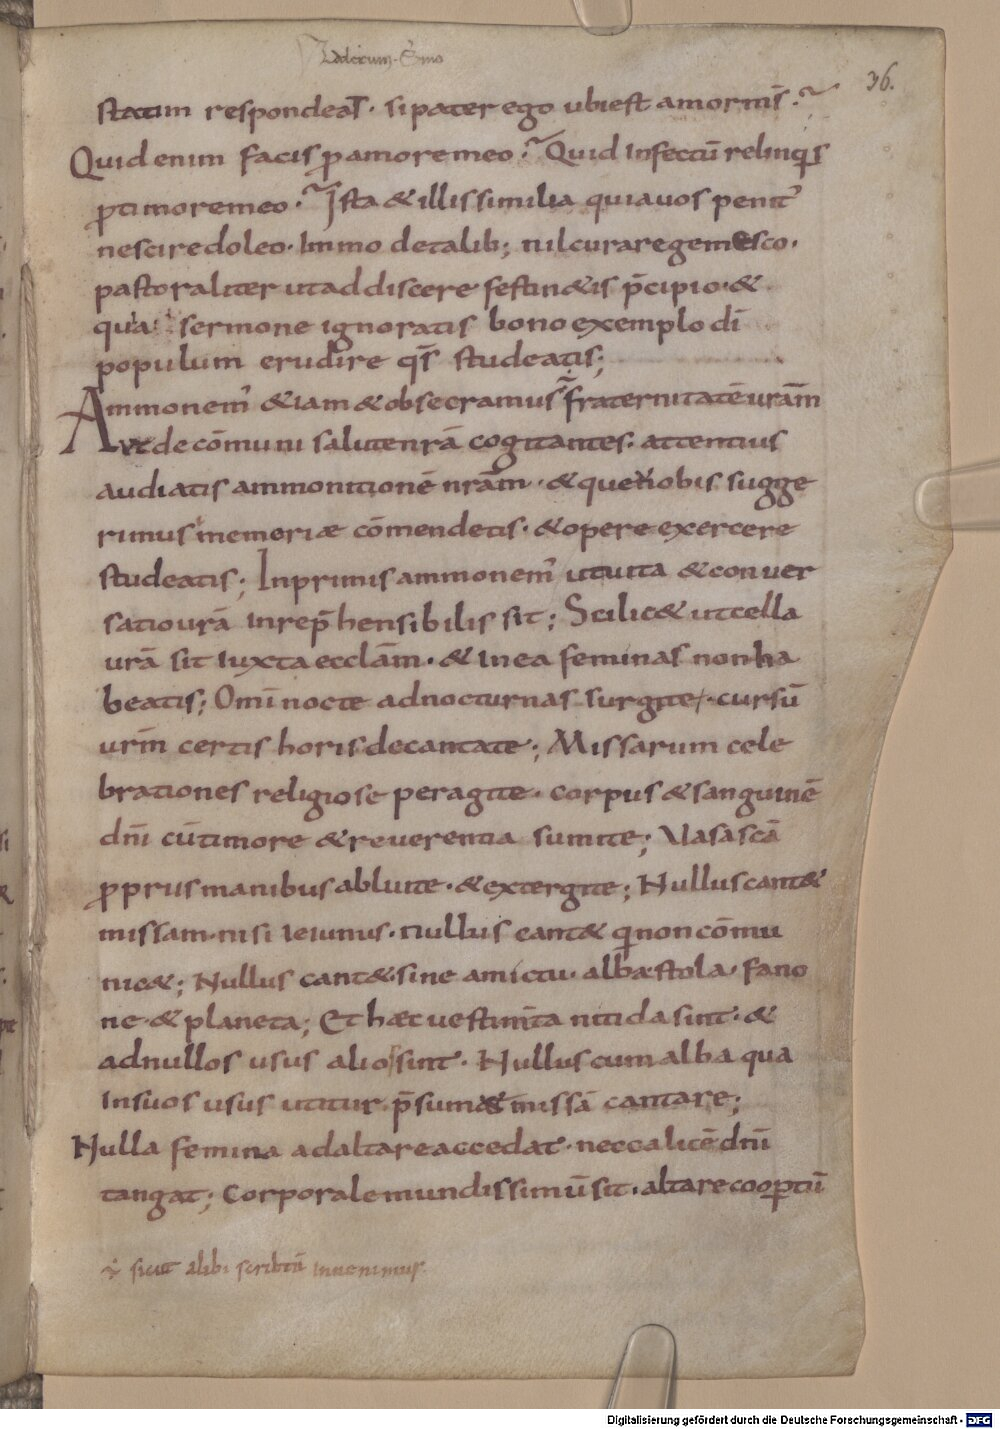 Udalricum. Sermo
36.
statim respondeat. si pater ego ubi est amor ms̄.
Quid enim facis ꝓ amore meo. Quid Infectū relinqis
ꝓ timore meo. Ista & illis similia quia uos penit᾽
nescire doleo. Immo de talib; nil curare gemesco.
pastoraliter ut addiscere festin&is p̄cipio. &
qua sermone ignoratis bono exemplo dī
populum erudire qs̄ studeatis;
Ammonem᾽ & iam & obsecramus fraternitatē urām
Vt de cōmuni salute nrā cogitantes. attentius
audiatis ammonitionē nrām. & que uobis sugge
rimus memoriæ cōmendetis. & opere exercere
studeatis; Inprimis ammonem᾽ ut uita & conuer
satio urā Inrep̄hensibilis sit; Scilic& ut cella
urā sit Iuxta ecclām. & In ea feminas non ha
beatis; Omī nocte ad nocturnas surgite. cursū
urm̄ certis horis decantate; Missarum cele
brationes religiose peragite. corpus & sanguinē
dnī cū timore & reuerentia sumite; Vasa scā
ꝓpriis manibus abluite. & extergite; Nullus cant&
missam. nisi Ieiunus. nullus cant& qi non cōmu
nic&; Nullus cant& sine amictu. alba stola. fano
ne. & planeta; Et hæc uestim̄ta nitida sint. &
ad nullos usus alios sint. Nullus cum alba qua
In suos usus utitur p̄sumat missā cantare;
Nulla femina ad altare accedat. nec calicē dnī
tangat; Corporale mundissimū sit. altare coop̄tū
sicut alibi scribtū Inuenimus.
Digitalisierung gefördert durch die Deutsche Forschungsgemeinschaft - DFG